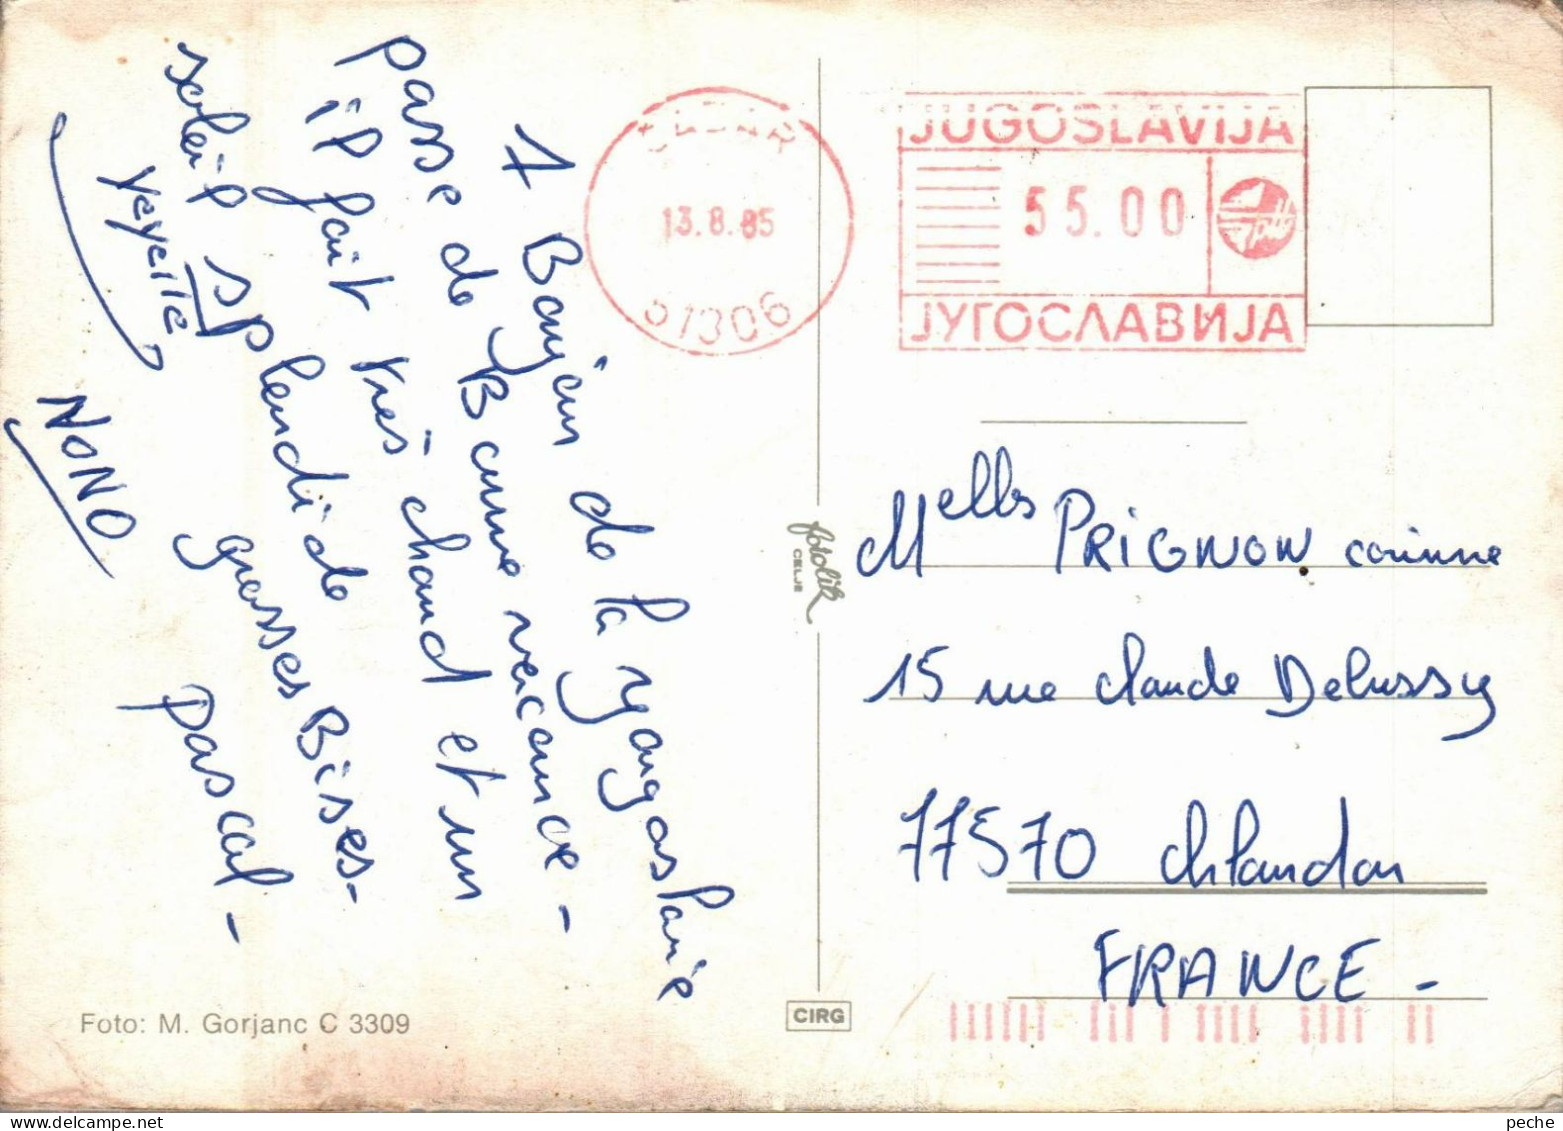 1 Bonjour de la Yougoslavie
passe de Bonne vacance -
il fait très chaud et un
soleil splendide
grosses Bises -
Pascal -
NONO
JUGOSLAVIJA
13.8.85
55.00
ptt
51306
ЈУГОСЛАВИЈА
Melles PRIGNON corinne
15 rue claude Debussy
77570 chlandon
FRANCE -
fotolik
CELJE
Foto: M. Gorjanc C 3309
CIRG
peche